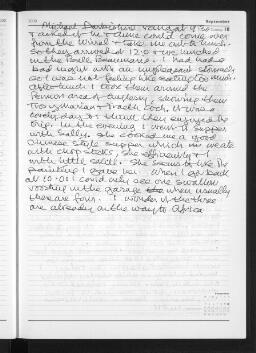 September
Michael Darbishire rang at 9.30
& asked if he & Anne could come over
from the Wirral & take me out to lunch.
So they arrived at 12.0 & we lunched
in the Bull, Beaumaris. I had had a
bad night with an unpleasant stomach
so I was not feeling like eating too much.
After lunch I took them around the
Penmon area of Anglesey, showing them
Trwyn and Traeth Coch. It was a
lovely day & I think they enjoyed the
trip. In the evening I went to supper
with Sally, she cooked me a good
Chinese style supper which we ate
with chop sticks, she efficiently & I
with little skill. She seems to like the
painting I gave her. When I got back
at 10.0 I could only see one swallow
roosting in the garage when usually
there are four. I wonder if the three
are already on the way to Africa